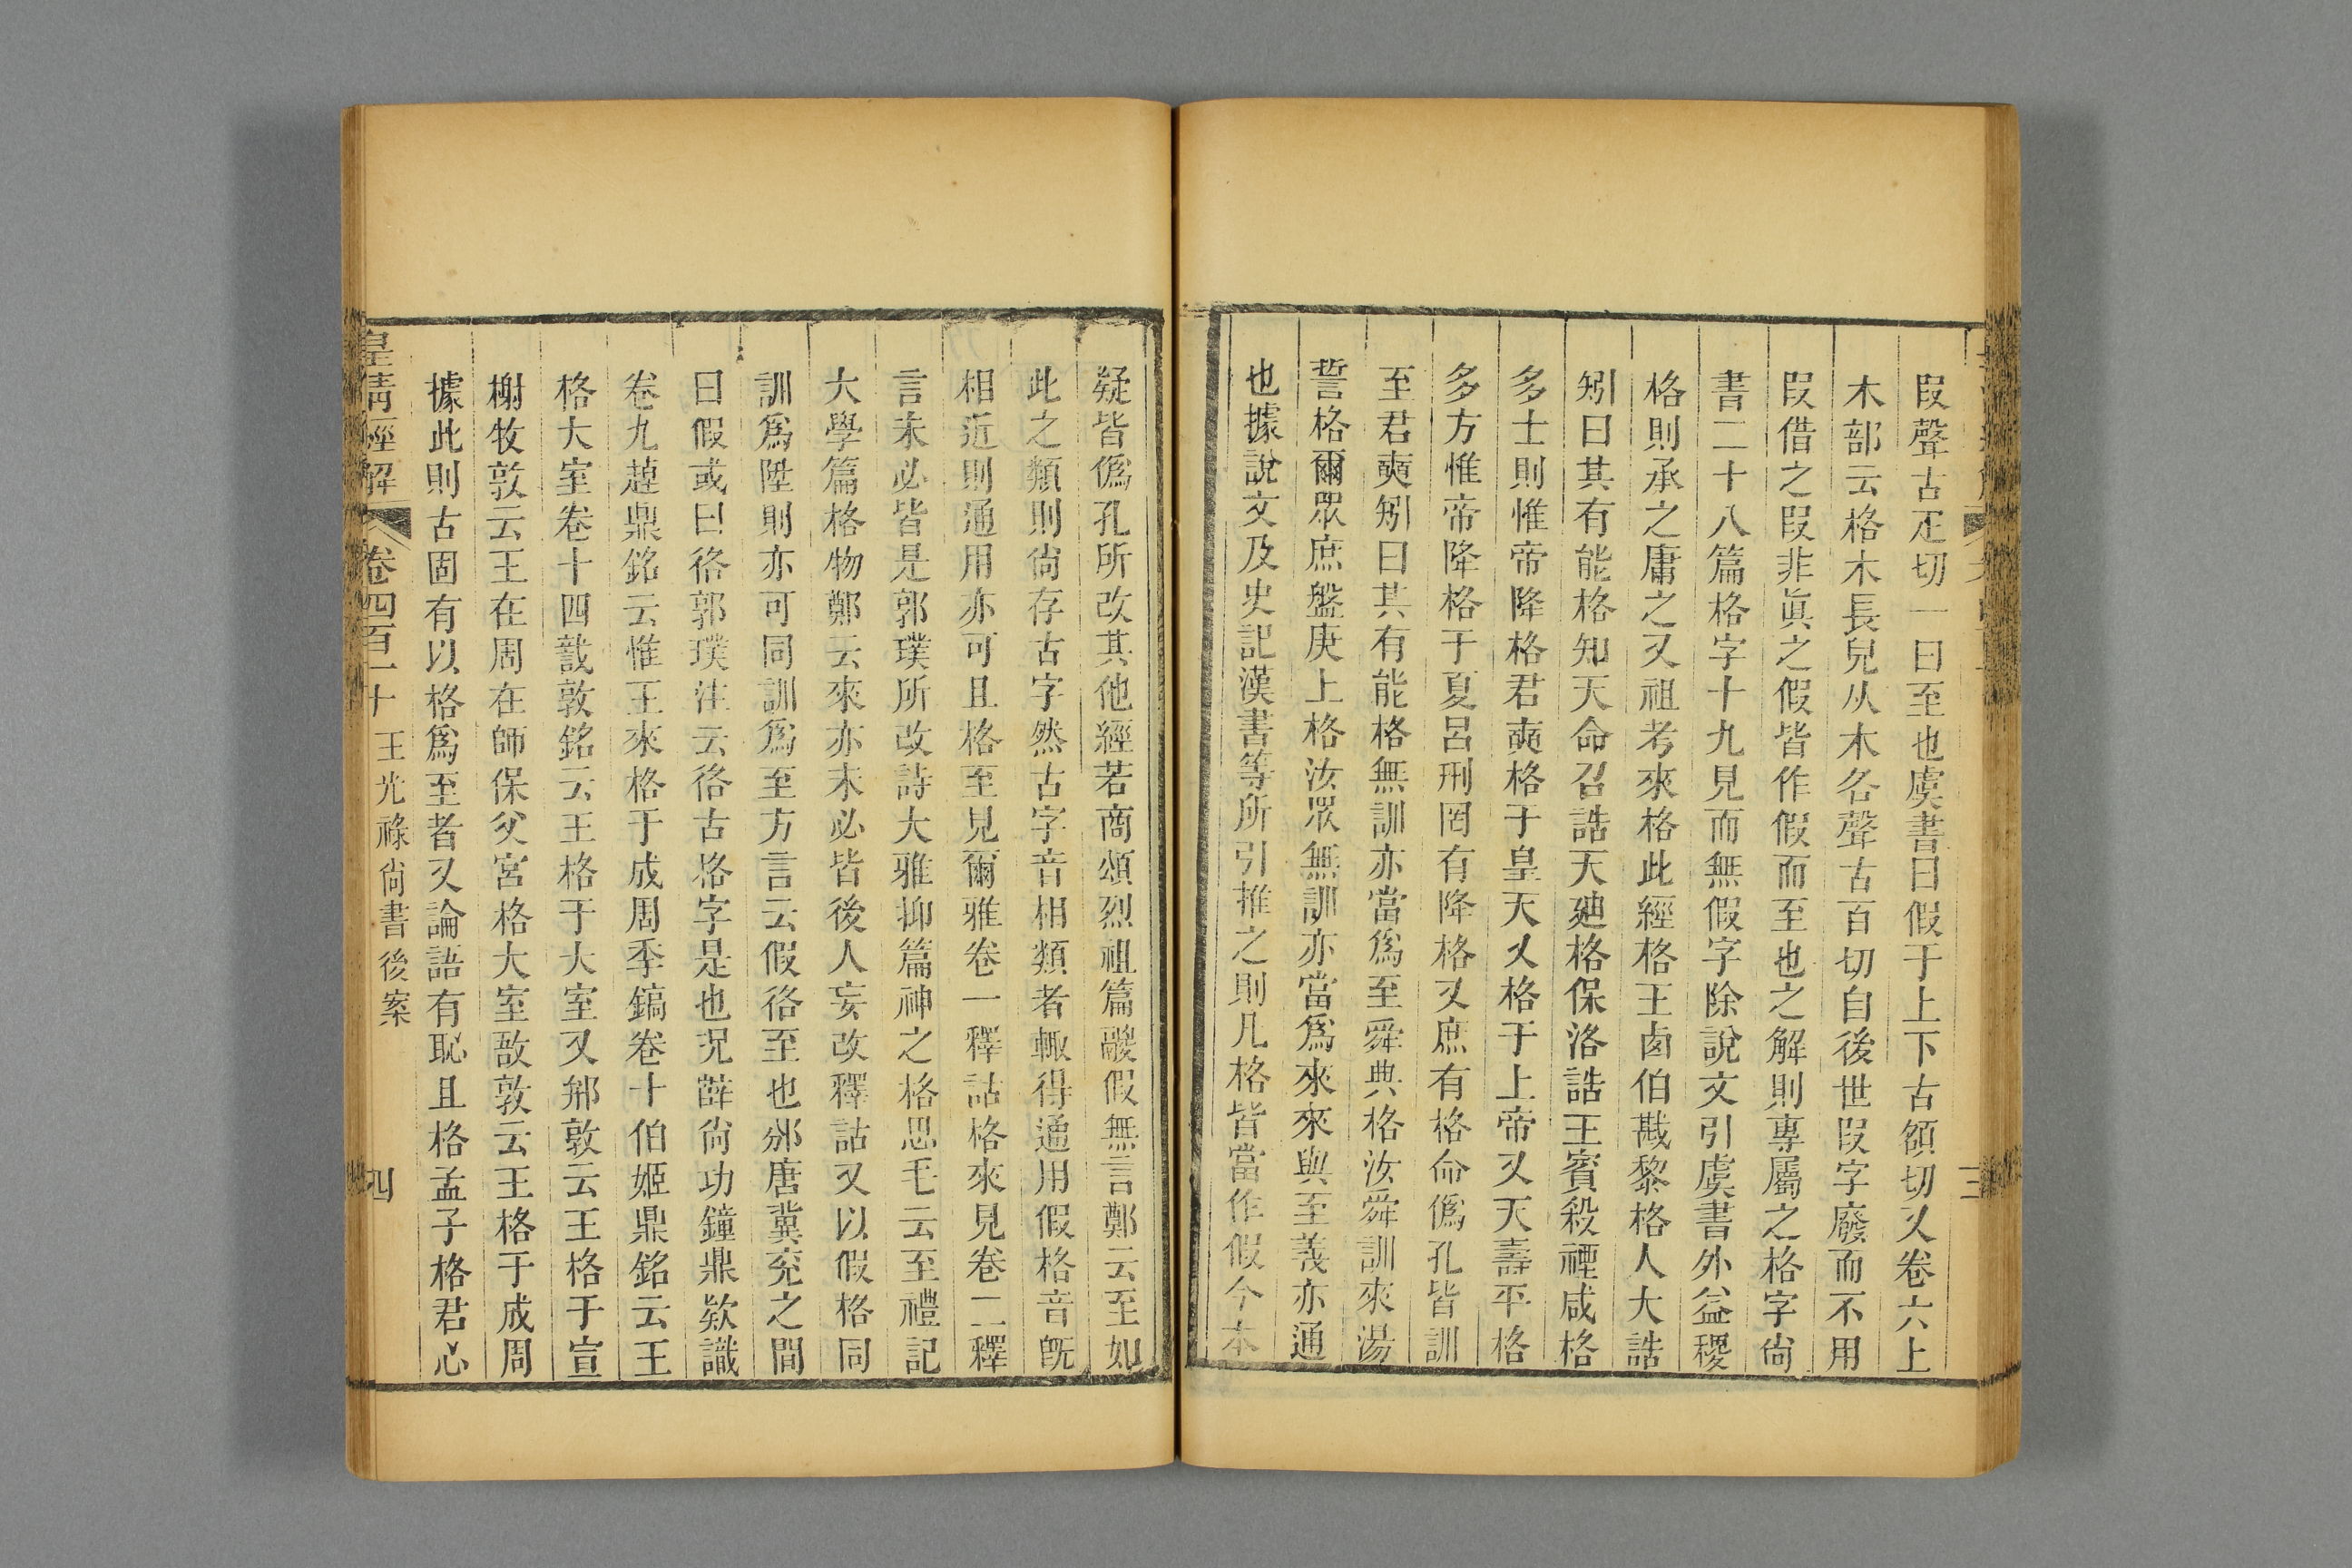 叚聲古疋切一曰至也虞書曰假于上下古額切又卷六上
木部云格木長皃从木各聲古百切自後世叚字廢而不用
叚借之叚非眞之假皆作假而至也之解則專屬之格字尙
書二十八篇格字十九見而無假字除說文引虞書外益稷
格則承之庸之又祖考來格此經格王卤伯戡黎格人大誥
矧曰其有能格知天命召誥天廸格保洛誥王賓殺禋咸格
多士則惟帝降格君奭格于皇天又格于上帝又天壽平格
多方惟帝降格于夏呂刑罔有降格又庶有格命僞孔皆訓
至君奭矧曰其有能格無訓亦當爲至舜典格汝舜訓來湯
誓格爾眾庶盤庚上格汝眾無訓亦當爲來來與至義亦通
也據說文及史記漢書等所引推之則凡格皆當作假今本
疑皆僞孔所改其他經若商頌烈祖篇鬷假無言鄭云至如
此之類則尙存古字然古字音相類者輙得通用假格音旣
相近則通用亦可且格至見爾雅卷一釋詁格來見卷二釋
言未必皆是郭璞所改詩大雅抑篇神之格思毛云至禮記
大學篇格物鄭云來亦未必皆後人妄改釋詁又以假格同
訓爲陞則亦可同訓爲至方言云假佫至也邠唐冀兖之間
曰假或曰佫郭璞注云佫古格字是也況薛尙功鐘鼎欵識
卷九趠鼎銘云惟王來格于成周季鎬卷十伯姬鼎銘云王
格大室卷十四㦵敦銘云王格于大室又䢵敦云王格于宣
榭牧敦云王在周在師保父宮格大室敔敦云王格于成周
據此則古固有以格爲至者又論語有恥且格孟子格君心
皇清經解 卷四百十 王光祿尙書後案 四